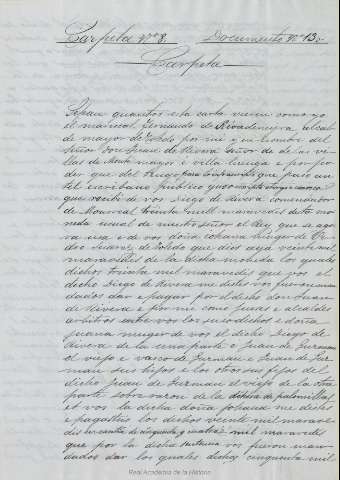 Carpeta Nº 8. Documento Nº 13.
Carpeta
Sepan quantos esta carta vieren como yo
el mariscal Fernando de Rivadeneyra alcal-
de mayor de Toledo por mi y en nombre del
Señor don Juan de Rivera señor de las vi-
llas de Monte mayor e villa luenga e por po-
der que del tengo para lo yuso escripto que pasó an-
tel escribano publico yuso
que recibi de vos Diego de Rivera comendador
de Monreal treinta mill maravedis desta mo-
neda usual de nuestro señor el Rey que a ago-
ra usa e de vos doña Johana muger de Pe-
dro Suarez de Toledo que dios aya veinte mil
maravedis de la dicha moneda los quales
dichos treinta mil maravedis que vos el
dicho Diego de Rivera me distes vos fueron man-
dados dar e pagar por el dicho don Juan
de Rivera e por mi como Jueces e alcaldes
arbitros entre vos los suso dichos e doña
Juana muger de vos el dicho Diego de
Rivera de la una parte e Juan de Guzman
el viejo e vasco de Guzman e Juan de Guz-
man sus hijos e los otros sus fijos del
dicho Juan de Guzman el viejo de la otra
parte sobre razon de la dehesa de
et vos la dicha doña Johana me distes
e pagastes los dichos veinte mil marave-
dis en cuenta de cinquenta mil maravedis
que por la dicha sentencia vos fueron man-
dados dar los quales dichos cinquenta mil
Real Academia de la Historia